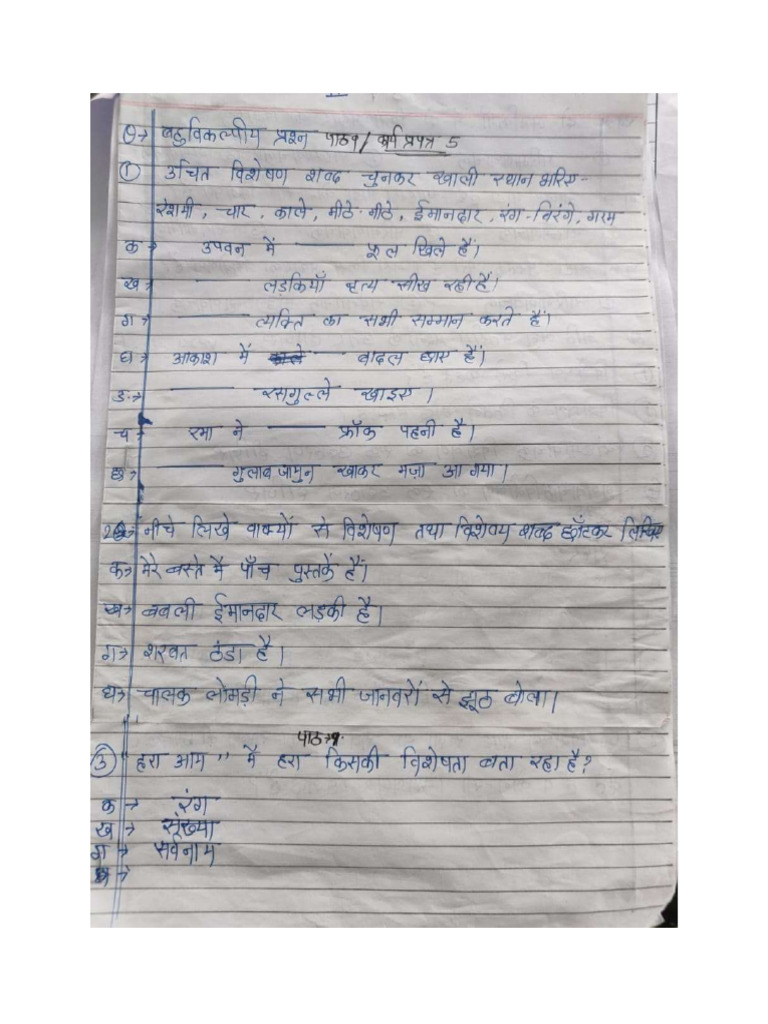 Q→ बहुविकल्पीय प्रश्न पाठ १ / कार्य प्रपत्र 5
① उचित विशेषण शब्द चुनकर खाली स्थान भरिए-
रेशमी, चार, काले, मीठे-मीठे, ईमानदार, रंग-बिरंगे, गरम
क→ उपवन में ——— फूल खिले हैं।
ख→ ——— लड़कियाँ नृत्य सीख रही हैं।
ग→ ——— व्यक्ति का सभी सम्मान करते हैं।
घ→ आकाश में ——— बादल छाए हैं।
ङ→ ——— रसगुल्ले खाइए।
च→ रमा ने ——— फ्रॉक पहनी है।
छ→ ——— गुलाब जामुन खाकर मज़ा आ गया।
2→ नीचे लिखे वाक्यों से विशेषण तथा विशेष्य शब्द छाँटकर लिखिए
क→ मेरे बस्ते में पाँच पुस्तकें हैं।
ख→ बबली ईमानदार लड़की है।
ग→ शरबत ठंडा है।
घ→ चालक लोमड़ी ने सभी जानवरों से झूठ बोला।
पाठ→१
③ "हरा आम" में हरा किसकी विशेषता बता रहा है?
क→ रंग
ख→ संख्या
ग→ सर्वनाम
घ→